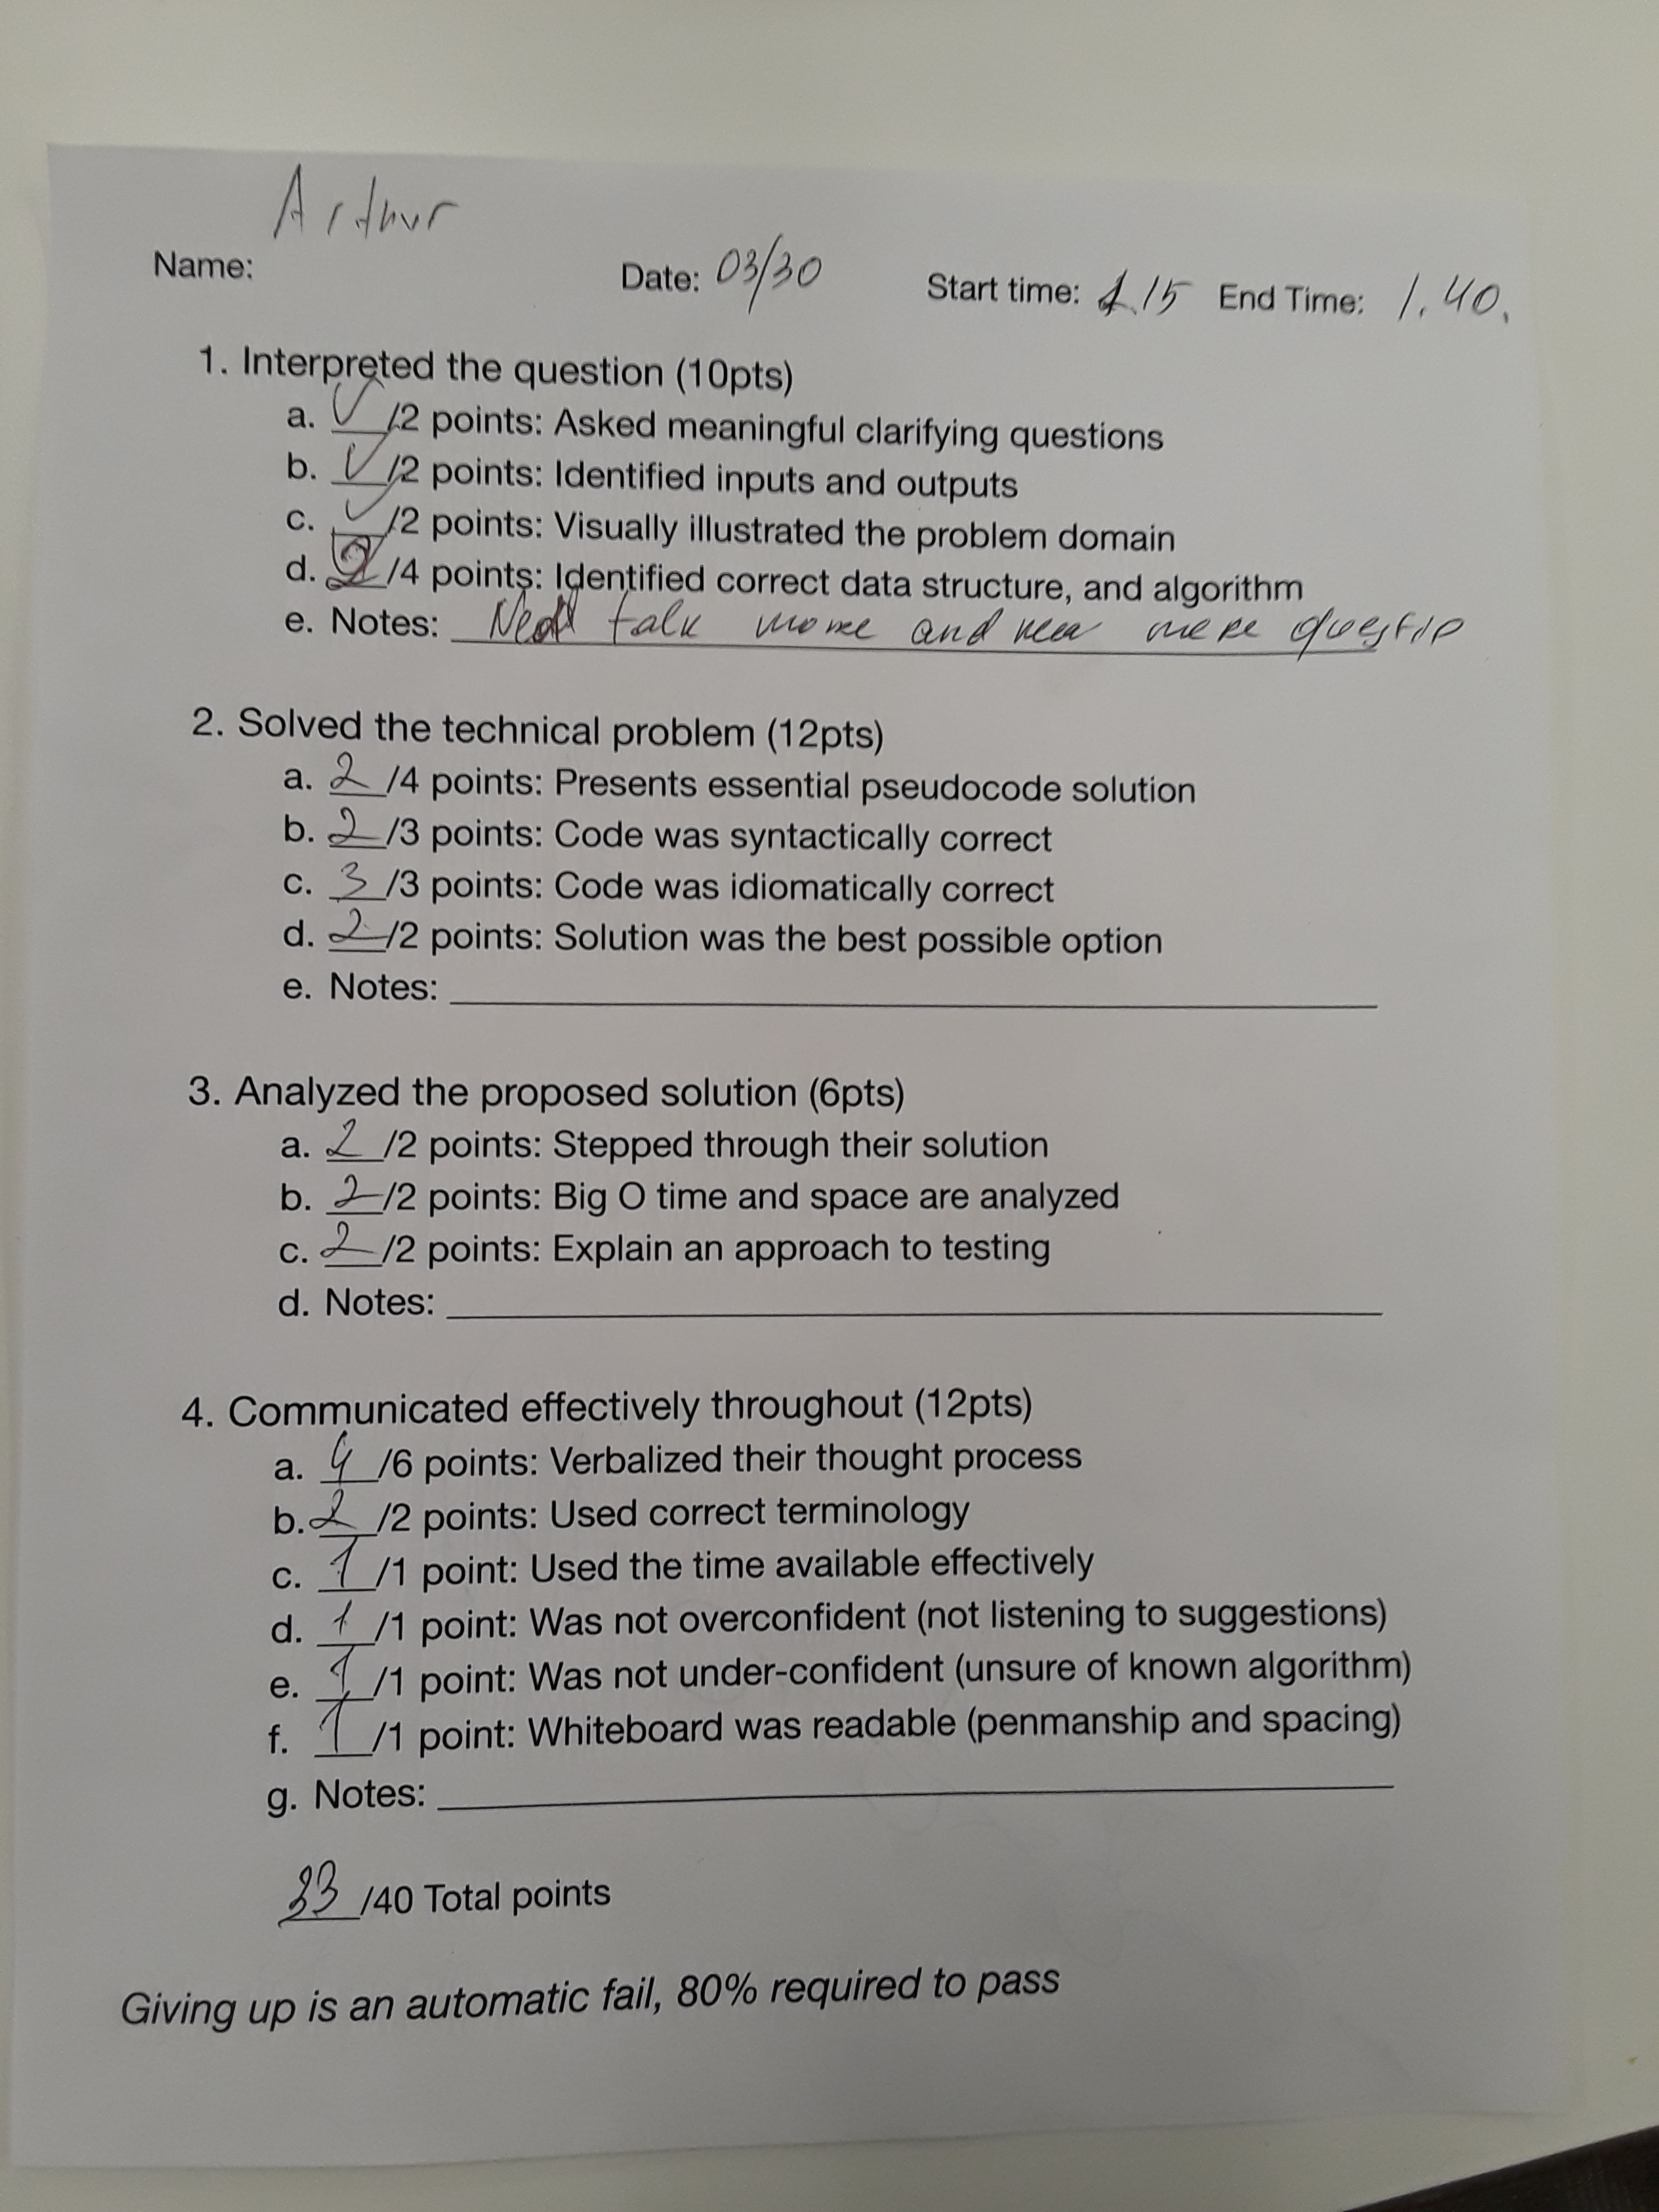 Arthur
Name: Date: 03/30 Start time: 1.15 End Time: 1.40.
1. Interpreted the question (10pts)
a. ✓/2 points: Asked meaningful clarifying questions
b. ✓/2 points: Identified inputs and outputs
c. ✓/2 points: Visually illustrated the problem domain
d. 2/4 points: Identified correct data structure, and algorithm
e. Notes: Need talk more and more questio
2. Solved the technical problem (12pts)
a. 2/4 points: Presents essential pseudocode solution
b. 2/3 points: Code was syntactically correct
c. 3/3 points: Code was idiomatically correct
d. 2/2 points: Solution was the best possible option
e. Notes:
3. Analyzed the proposed solution (6pts)
a. 2/2 points: Stepped through their solution
b. 2/2 points: Big O time and space are analyzed
c. 2/2 points: Explain an approach to testing
d. Notes:
4. Communicated effectively throughout (12pts)
a. 4/6 points: Verbalized their thought process
b. 2/2 points: Used correct terminology
c. 1/1 point: Used the time available effectively
d. 1/1 point: Was not overconfident (not listening to suggestions)
e. 1/1 point: Was not under-confident (unsure of known algorithm)
f. 1/1 point: Whiteboard was readable (penmanship and spacing)
g. Notes:
33/40 Total points
Giving up is an automatic fail, 80% required to pass